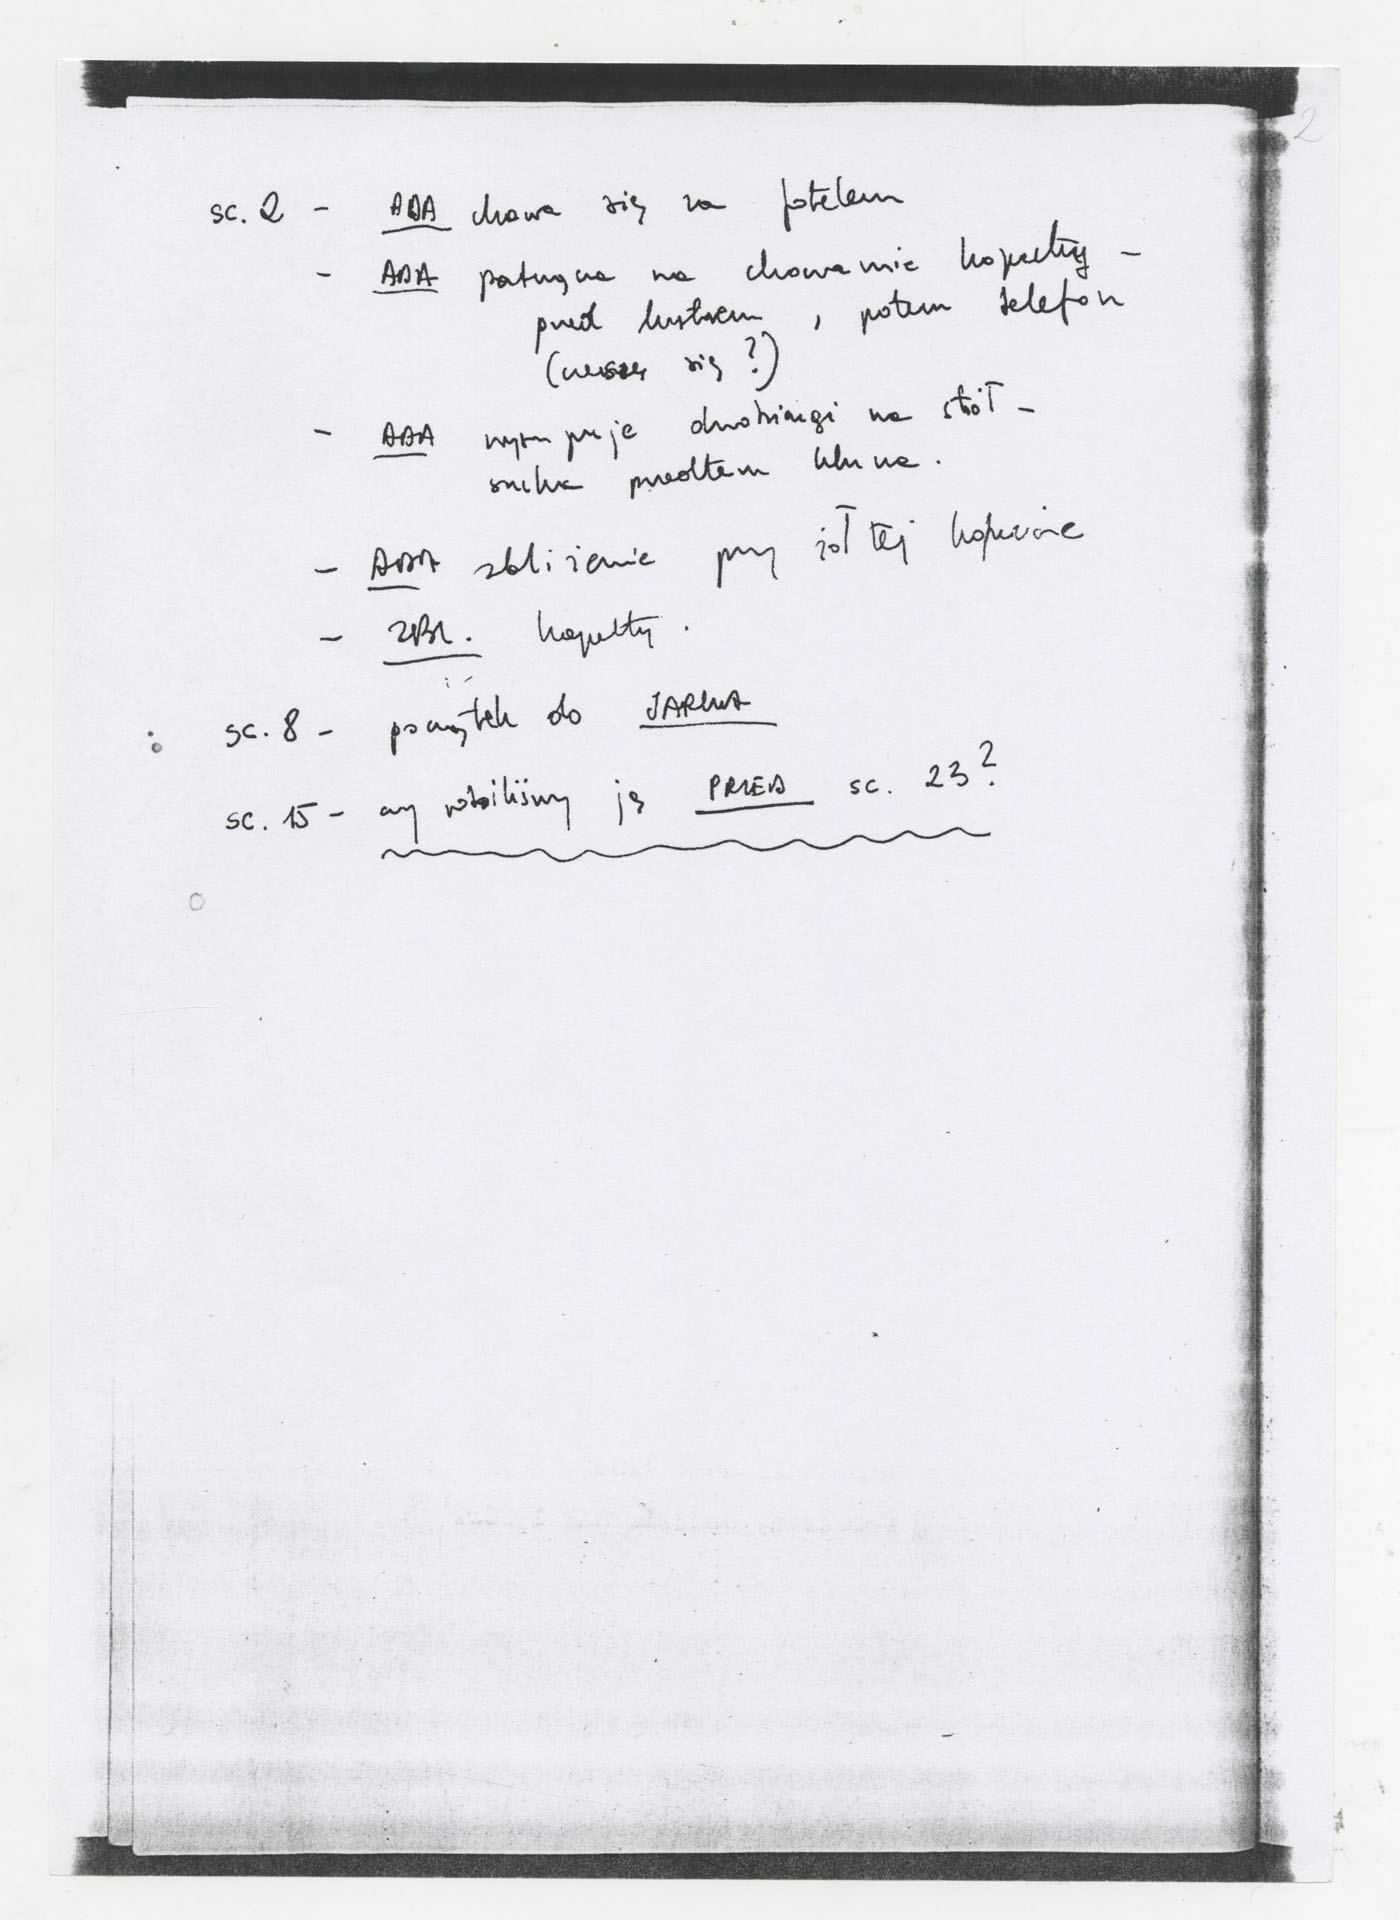 2
sc. 2 - ADA chowa się za fotelem
- ADA patrząca na chowanie koperty -
przed lustrem, potem telefon
(wersze się?)
- ADA wysypuje drobiazgi na stół -
szuka przedtem klucza.
- ADA zbliżenie przy żółtej kopercie
- ZBL. koperty.
sc. 8 - początek do JARKA
sc. 15 - czy robiliśmy ją PRZED sc. 23?